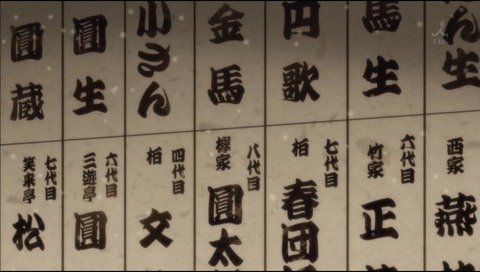 ん生
馬生
円歌
金馬
小さん
圓生
圓蔵
西家
燕
六代目
竹家
正
七代目
柏
春団
八代目
欅家
圓太
四代目
柏
文
六代目
三遊亭
圓
七代目
笑楽亭
松